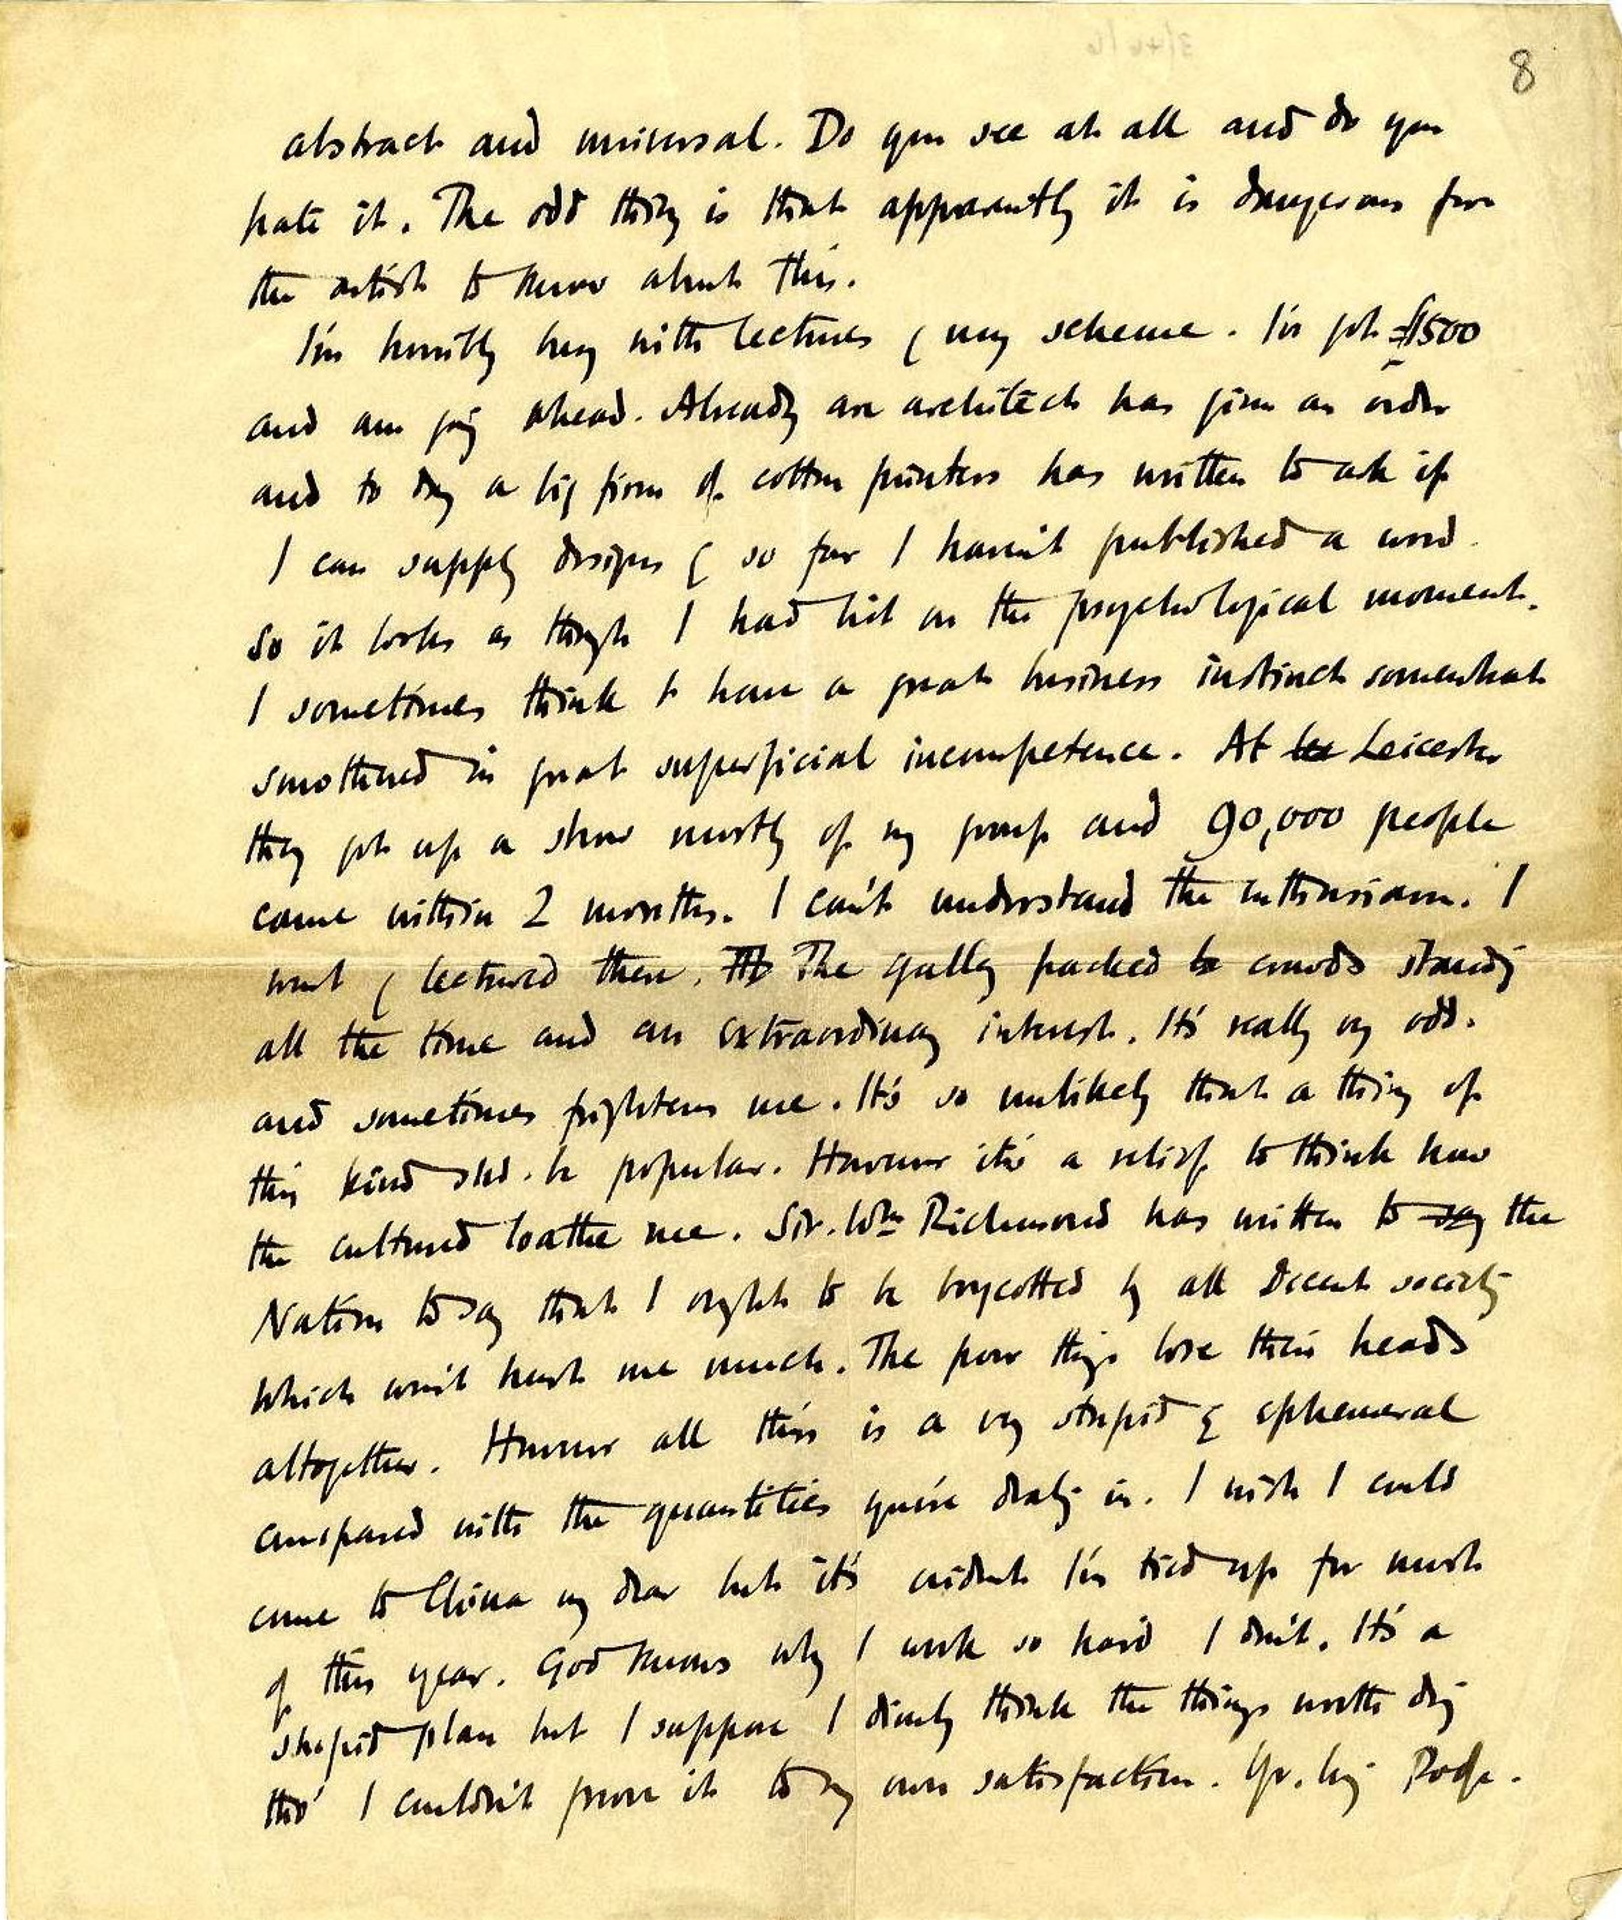 8
abstract and universal. Do you see at all and do you
hate it. The odd thing is that apparently it is dangerous for
the artist to know about this.
I'm horribly busy with lectures & my scheme. I've got £1500
and am going ahead. Already an architect has given an order
and to day a big firm of cotton printers has written to ask if
I can supply designs & so far I haven't published a word
So it looks as though I had hit on the psychological moment.
I sometimes think to have a great business instinct somewhat
smothered in great superficial incompetence. At Leicester
they got up a show mostly of my group and 90,000 people
came within 2 months. I can't understand the enthusiasm. I
went & lectured there. The gallery packed crowds standing
all the time and an extraordinary interest. It's really very odd.
and sometimes frightens me. It's so unlikely that a thing of
this kind shd. be popular. However it's a relief to think how
the cultured loathe me. Sir. Wm Richmond has written to say the
Nation to say that I ought to be boycotted by all decent society
which won't hurt me much. The poor things lose their heads
altogether. However all this is a very stupid & ephemeral
compared with the quantities you're dealing in. I wish I could
come to China my dear but it's evident I'm tied up for most
of this year. God knows why I work so hard I don't. It's a
stupid plan but I suppose I dimly think the things worth doing
tho' I couldn't prove it to my own satisfaction. Yr. lvg Roge.